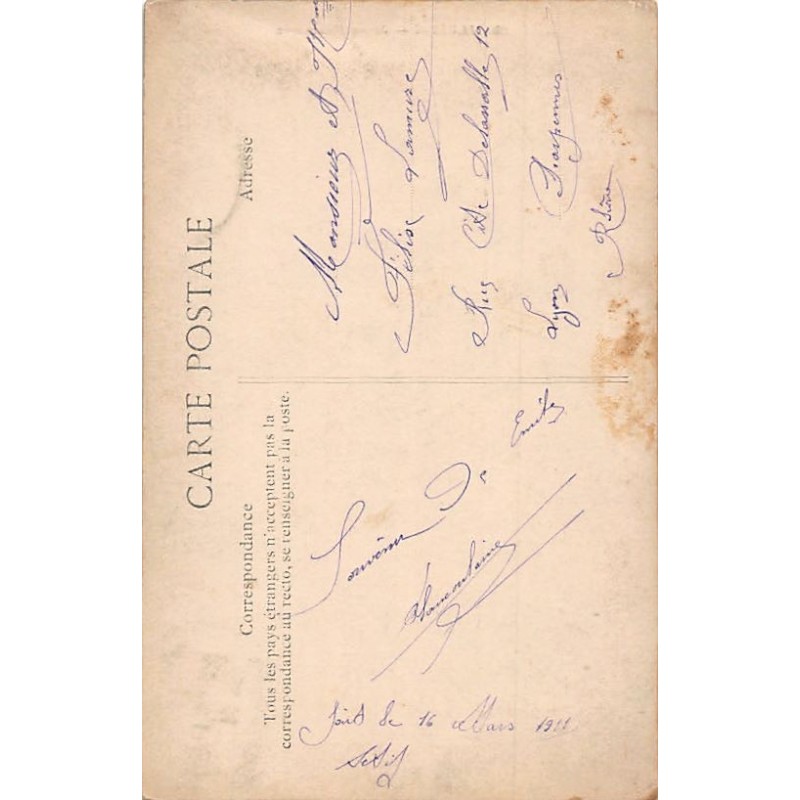 CARTE POSTALE
Correspondance
Tous les pays étrangers n'acceptent pas la
correspondance au recto, se renseigner à la poste.
Adresse
Souvenir De
Emile
Fait le 16 Mars 1911
Sétif
Monsieur et Mme
Félix Lamure
Rue Cité Delassalle 12
Lyon Charpennes
Rhône